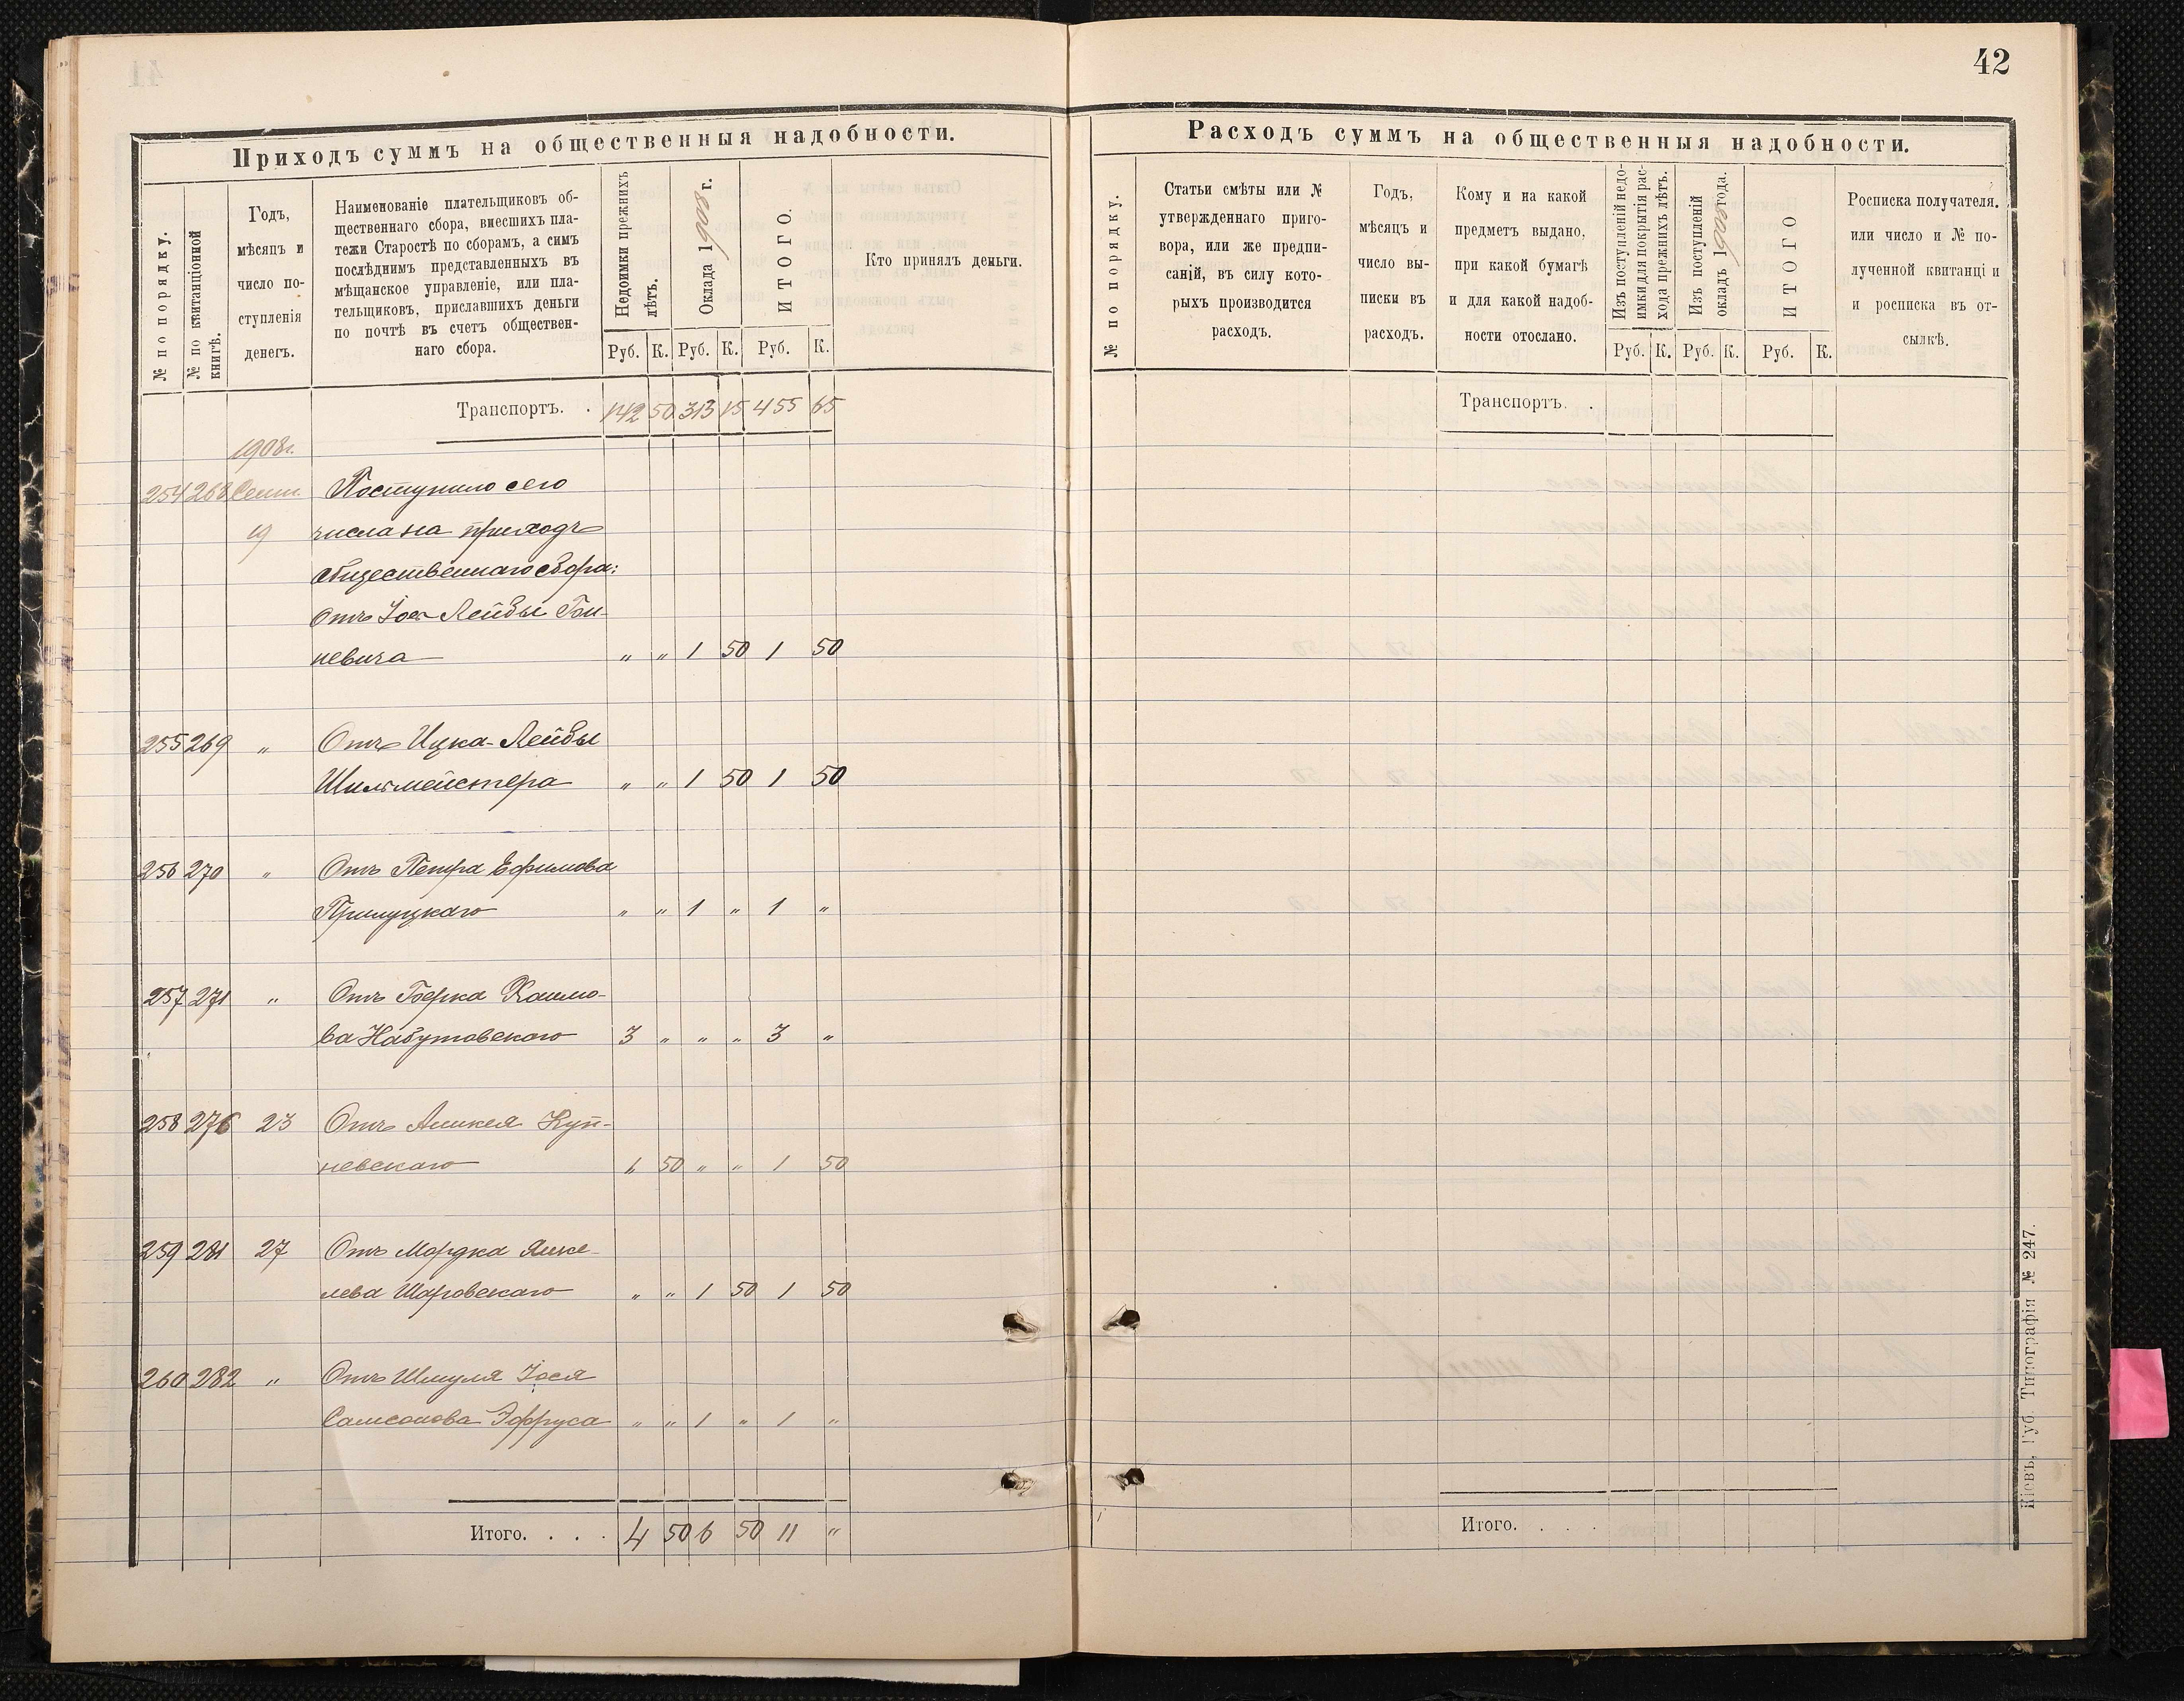 42
Приходъ суммъ на общественныя надобности.
№ по порядку.
№ по квитанціонной книгѣ.
Годъ,
мѣсяцъ и
число по-
ступленія
денегъ.
Наименованіе плательщиковъ об-
щественнаго сбора, внесшихъ пла-
тежи Старостѣ по сборамъ, а симъ
послѣднимъ представленныхъ въ
мѣщанское управленіе, или пла-
тельщиковъ, приславшихъ деньги
по почтѣ въ счетъ обществен-
наго сбора.
Недоимки прежнихъ лѣтъ.
Оклада 1908 г.
ИТОГО.
Кто принялъ деньги.
Руб. К. Руб. К. Руб. К.
Транспортъ. . 142 50 313 15 455 65
1908г.
254 268 Сент. Поступило сего
19 числа на приходъ
общественнаго сбора:
Отъ Лейбы
невича " " 1 50 1 50
255 269 " Отъ Ицка-Лейбы
Шильмейстера " " 1 50 1 50
256 270 " Отъ Петра Ефимова
Прилуцкаго " " 1 " 1 "
257 271 " Отъ Хаимо-
ва Набутовскаго 3 " " " 3 "
258 276 23 Отъ Куп-
невскаго 1 50 " " 1 50
259 281 27 Отъ Мордка Янке-
лева Шаровскаго " " 1 50 1 50
260 282 " Отъ Шмуля Іося
Самсонова Эфруса " " 1 " 1 "
Итого. . . . 4 50 6 50 11 "
Расходъ суммъ на общественныя надобности.
№ по порядку.
Статьи смѣты или №
утвержденнаго приго-
вора, или же предпи-
саній, въ силу кото-
рыхъ производится
расходъ.
Годъ,
мѣсяцъ и
число вы-
писки въ
расходъ.
Кому и на какой
предметъ выдано,
при какой бумагѣ
и для какой надоб-
ности отослано.
Изъ поступленій недо-
имки для покрытія рас-
хода прежнихъ лѣтъ.
Изъ поступленій
окладъ 1908 года.
ИТОГО
Росписка получателя.
или число и № по-
лученной квитанціи
и росписка въ от-
сылкѣ.
Руб. К. Руб. К. Руб. К.
Транспортъ. .
Итого. . . .
Кіевъ, Губ. Типографія № 247.